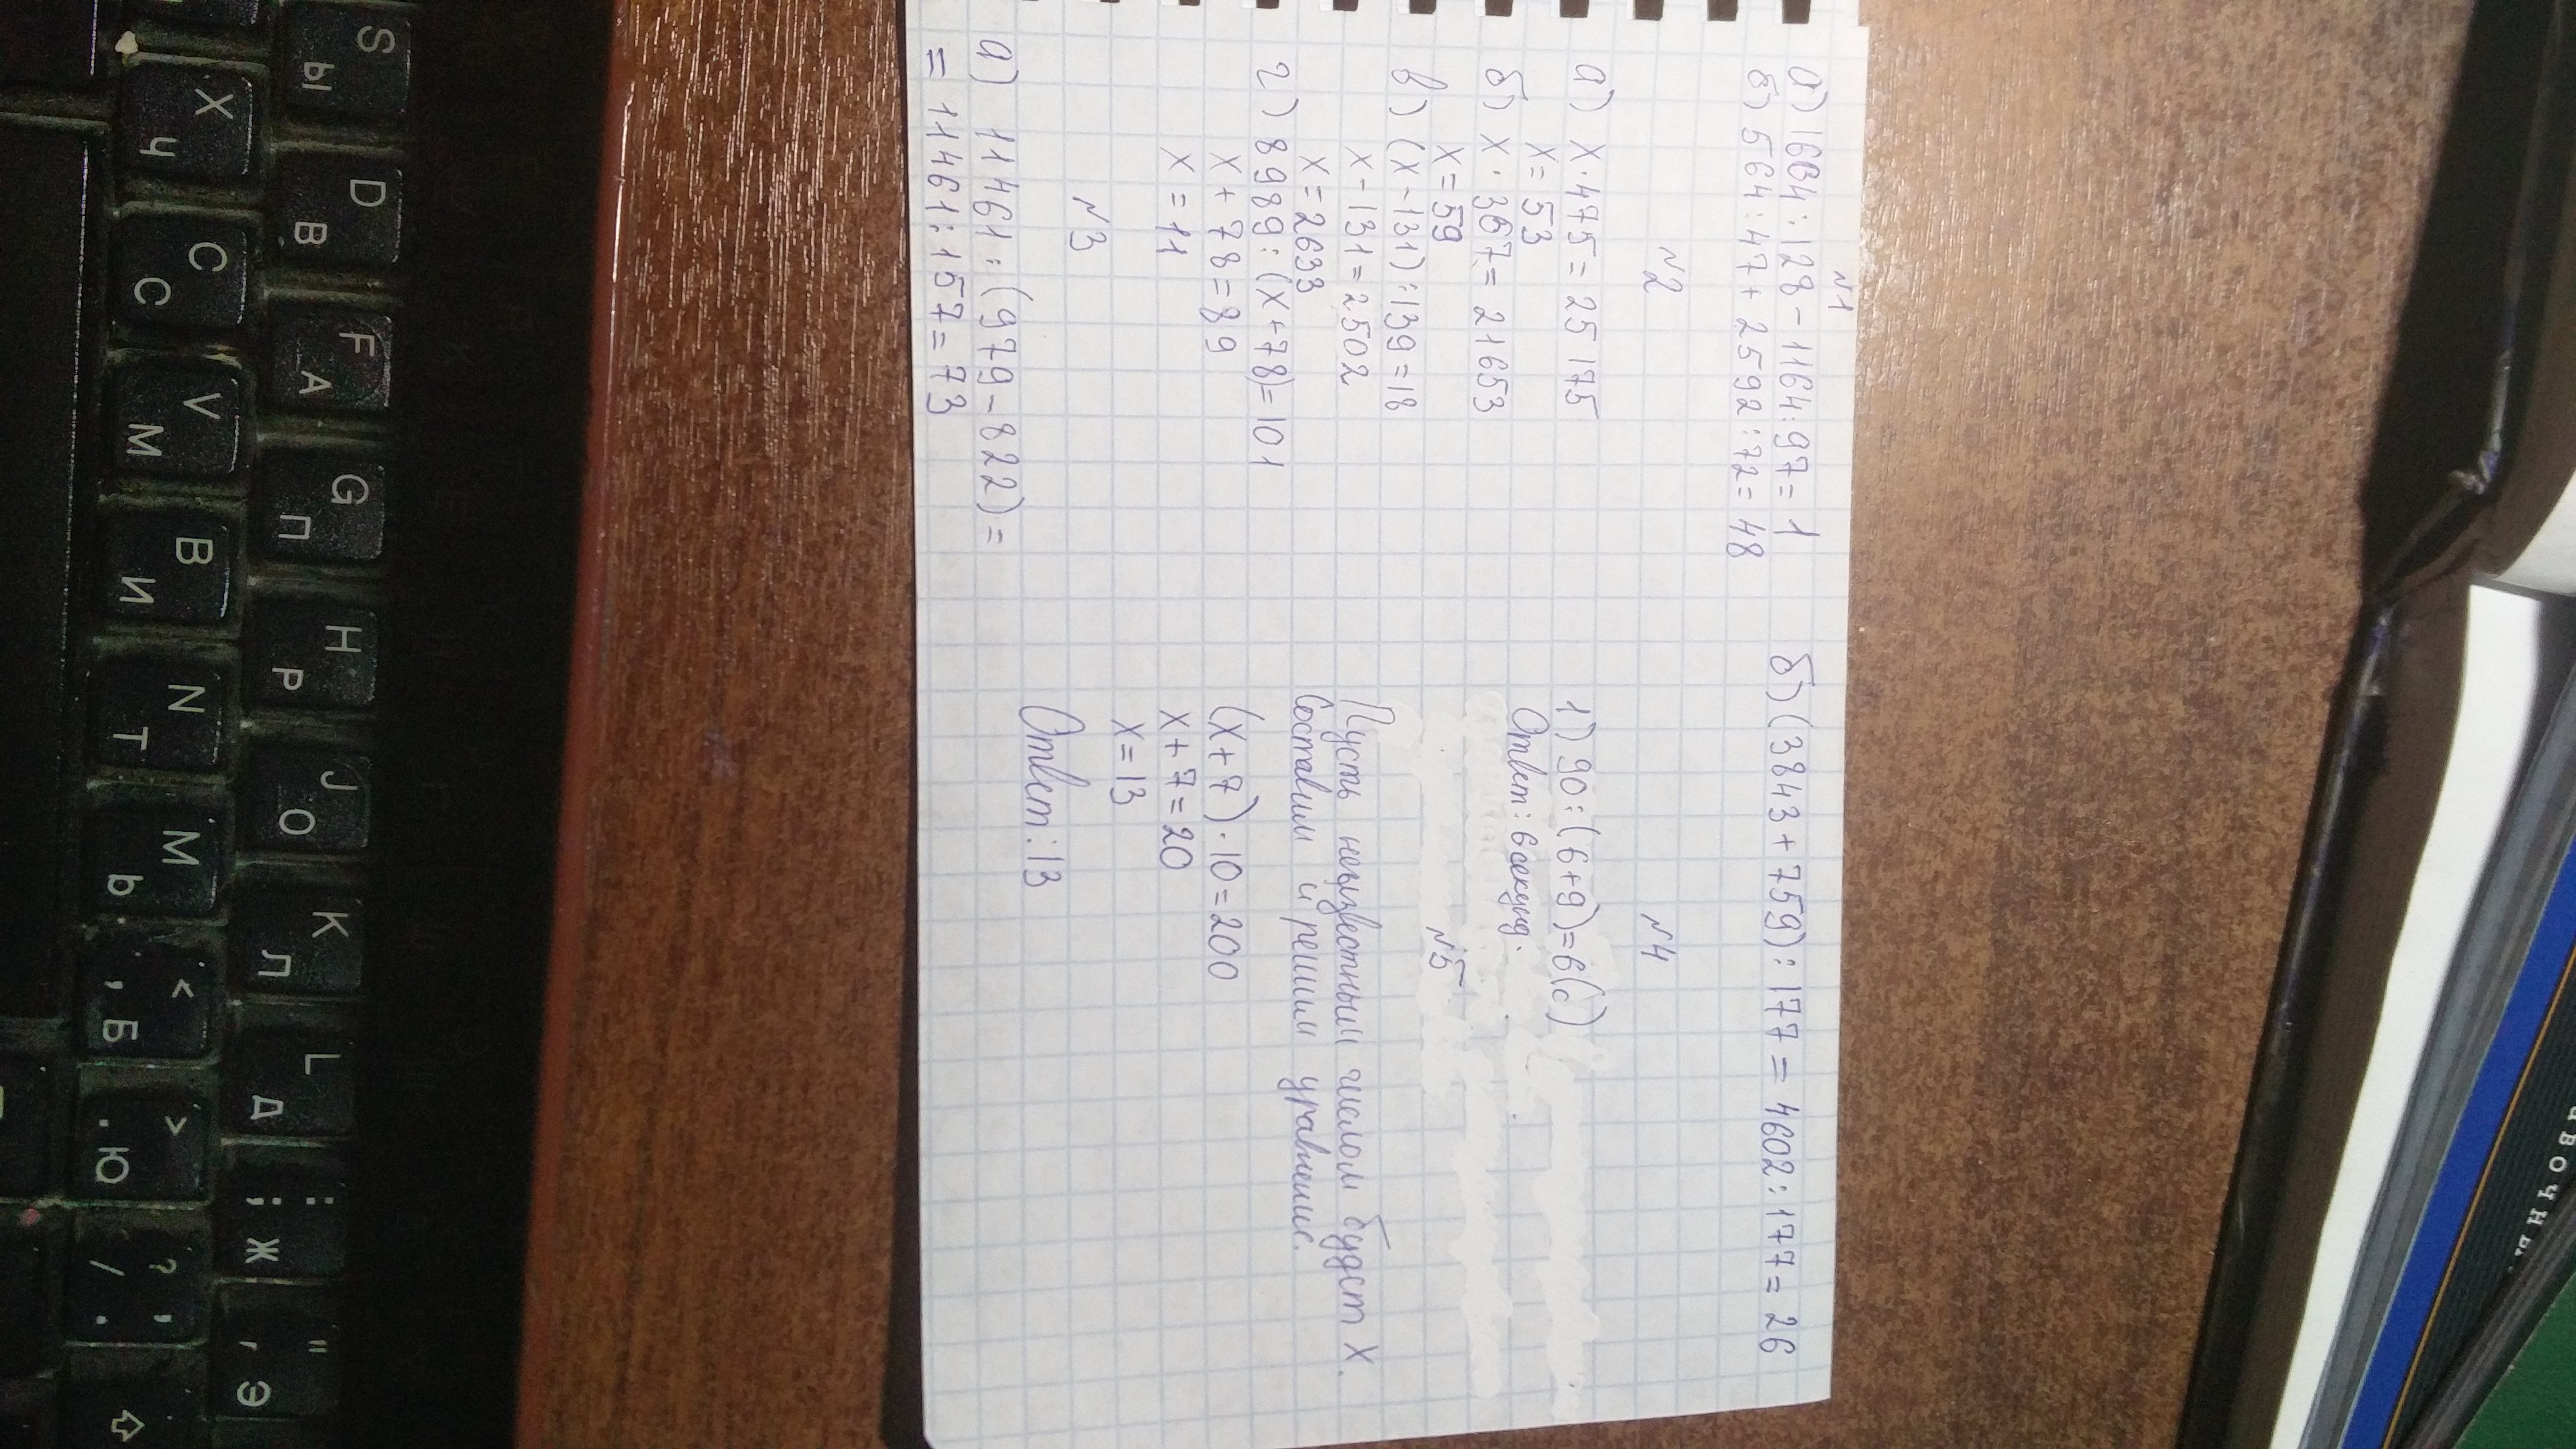 N1
а) 1664 : 128 - 1164 : 97 = 1
б) 564 : 47 + 2592 : 72 = 48
N2
а) x · 475 = 25175
x = 53
б) x · 367 = 21653
x = 59
в) (x - 131) : 139 = 18
x - 131 = 2502
x = 2633
г) 8989 : (x + 78) = 101
x + 78 = 89
x = 11
N3
а) 11461 : (979 - 822) =
= 11461 : 157 = 73
б) (3843 + 759) : 177 = 4602 : 177 = 26
N4
1) 90 : (6 + 9) = 6 (с)
Ответ: 6 секунд.
N5
Пусть неизвестным числом будет x.
Составим и решим уравнение.
(x + 7) · 10 = 200
x + 7 = 20
x = 13
Ответ: 13
S Ы
D В
F А
G П
H Р
J О
K Л
L Д
: ; Ж
" ' Э
X Ч
C С
V М
B И
N Т
M Ь
< , Б
> . Ю
? / , .